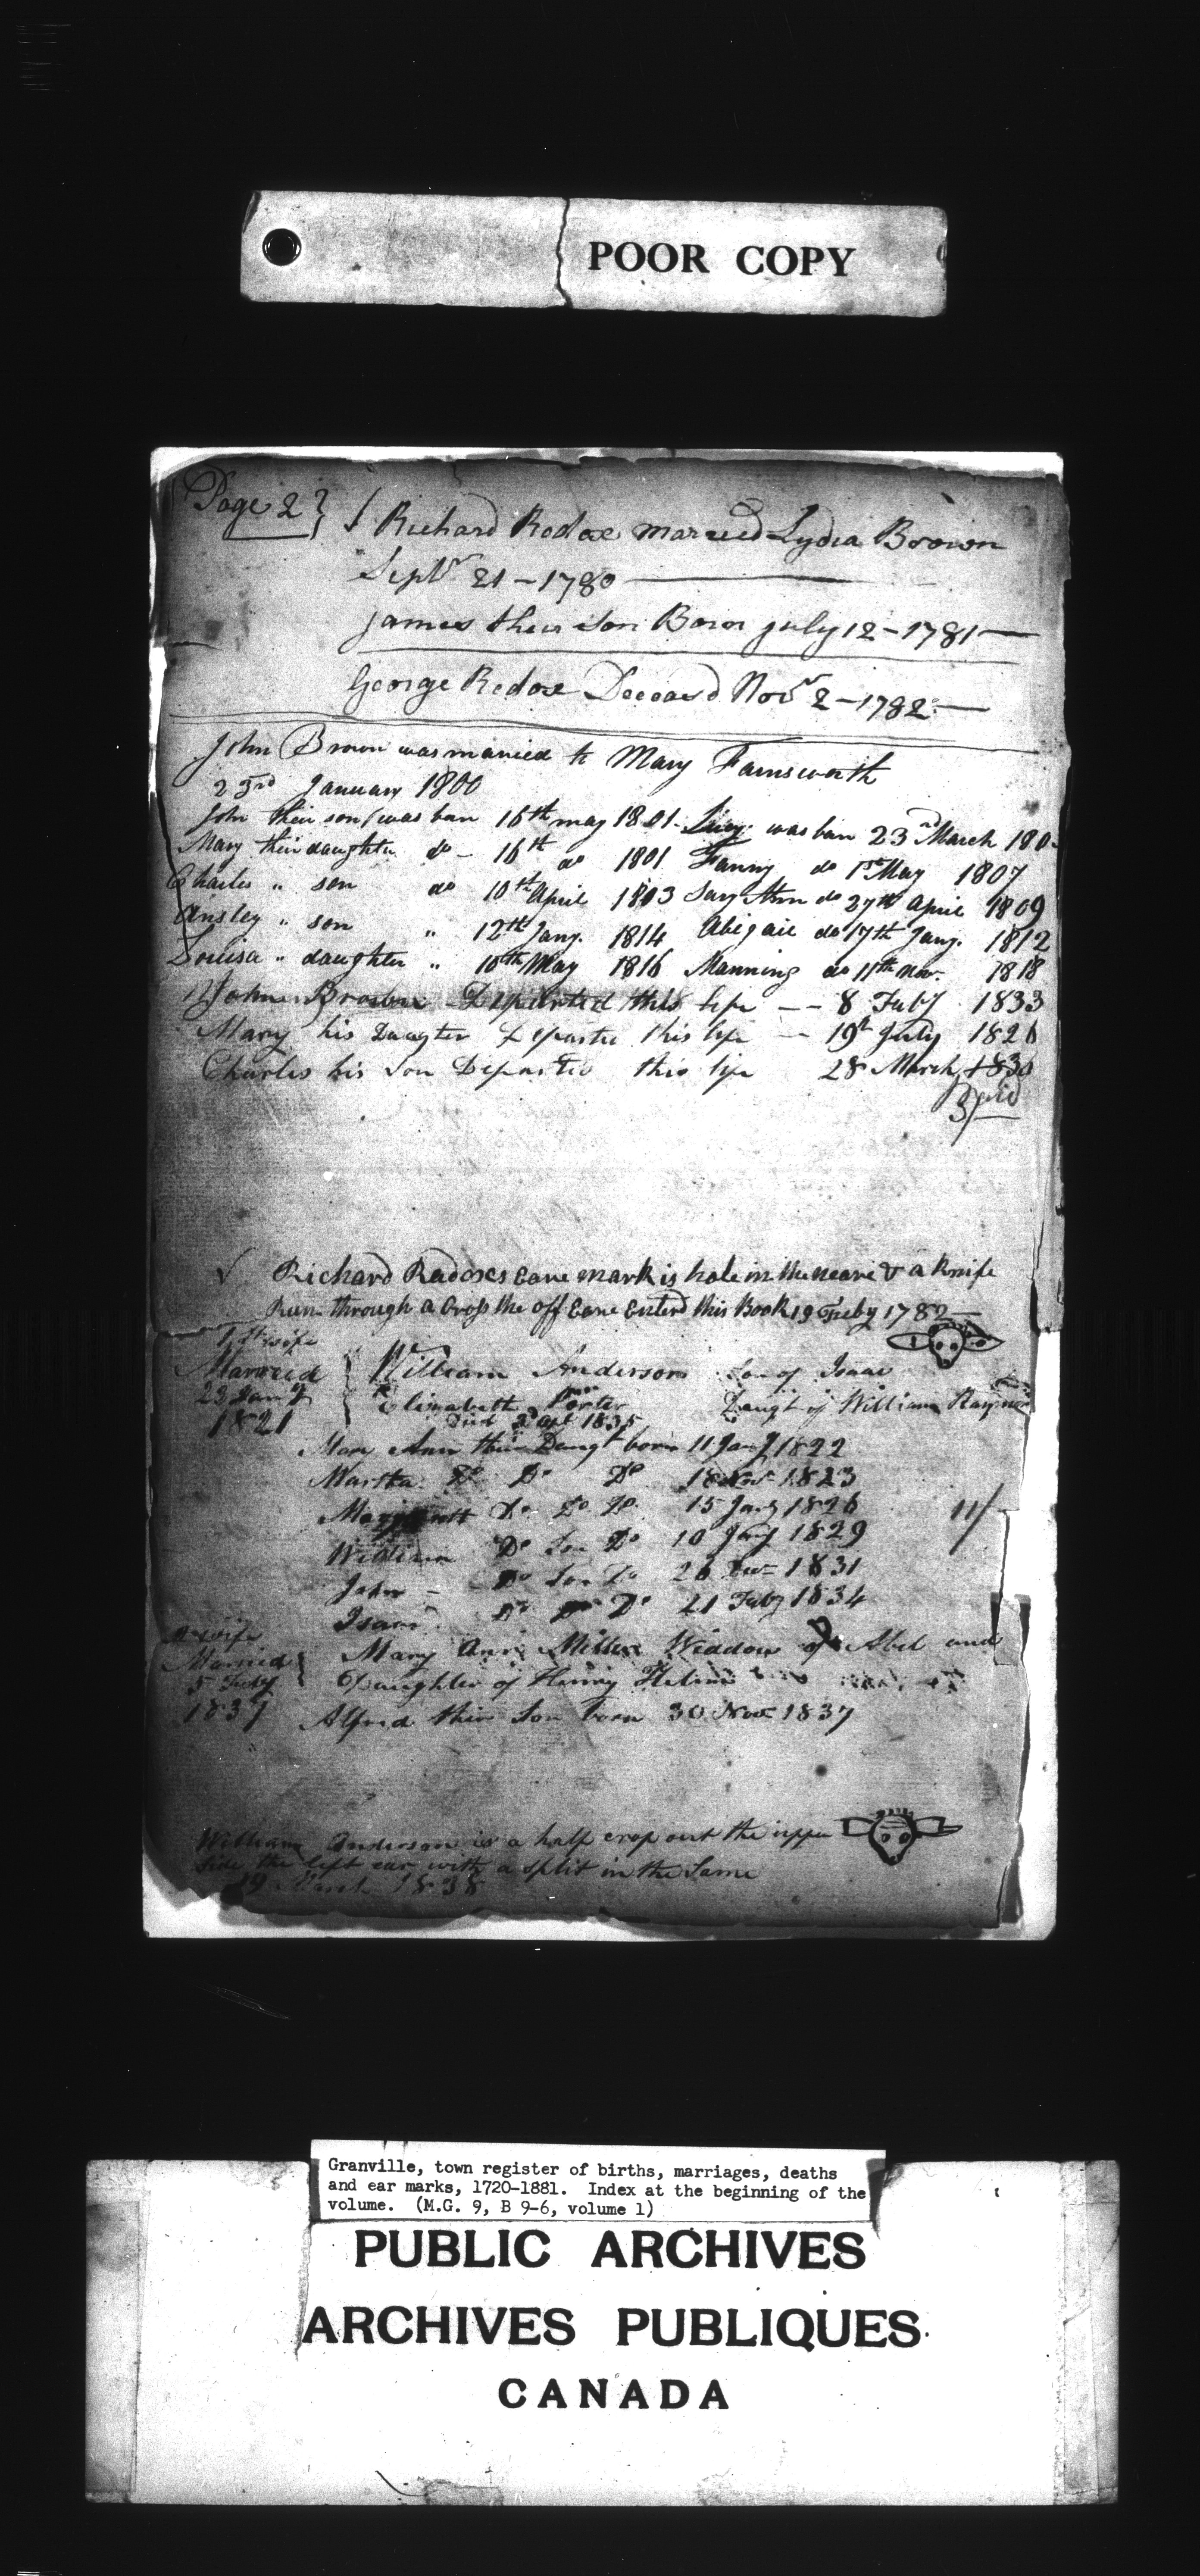 POOR COPY
Page 2} Richard Redoxe married Lydia Brown
Septr 21 - 1780
James their Son Born July 12 - 1781
George Redoxe Deceased Novr 2 - 1782
John Brown was married to Mary Farnsworth
23rd January 1800
John their son was born 16th may 1801 - Lucy was born 23rd March
Mary their daughter do - 16th do 1801 Fanny do 1st May 1807
Charles " son do 10th April 1803 Sary Ann do 27th April 1809
Ansley " son " 12th Jany. 1814 Abigail do 17th Jany. 1812
Louisa " daughter " 10th May 1816 Manning do 11th Nov. 1818
John Brown Departed this life -- 8 Feby 1833
Mary his Daugter Departed this life -- 19th July 1826
Charles his Son Departed this life 28 March 1830
Richard Radoxes Eare mark is hole in the neare & a Knife
Run through a Crop the off Eare Enterd this Book 19 Feby 1782
1st wife
Married William Anderson Son of Isaac
23 Jany Elizabeth Porter Daugt of William Raymor
1821 Died apl 1835
Mary Ann their Daugt born 11 Jany 1822
Martha Do Do Do 18 Nov 1823
Do Do Do 15 Jany 1826 11/
William Do Son Do 10 Jany 1829
John - Do Son Do 26 Dec 1831
Isaac Do Do Do 21 Feby 1834
wife
Married Mary Ann Miller Widdow of Abel and
5 Daughter of Henry
1837 Alfred their Son born 30 Nov 1837
William Anderson is a half crop out the upper
side the left ear with a split in the Same
March 1838
Granville, town register of births, marriages, deaths
and ear marks, 1720-1881. Index at the beginning of the
volume. (M.G. 9, B 9-6, volume 1)
PUBLIC ARCHIVES
ARCHIVES PUBLIQUES
CANADA